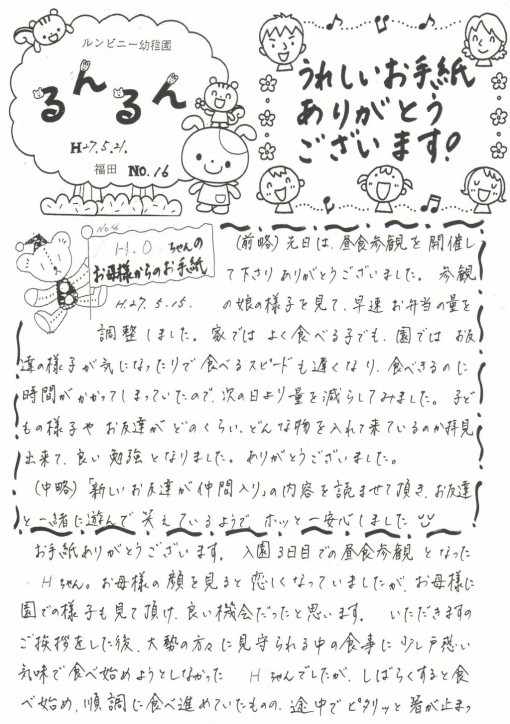 ルンビニー幼稚園
るんるん
H27.5.21.
福田 No.16
うれしいお手紙
ありがとう
ございます!
No.4
H.O ちゃんの
お母様からのお手紙
H.27.5.15.
(前略)先日は、昼食参観を開催し
て下さりありがとうございました。 参観
の娘の様子を見て、早速お弁当の量を
調整しました。家ではよく食べる子でも、園ではお友
達の様子が気になったりで食べるスピードも遅くなり、食べきるのに
時間がかかってしまっていたので、次の日より量を減らしてみました。子ど
もの様子やお友達がどのくらい、どんな物を入れて来ているのか拝見
出来て、良い勉強となりました。ありがとうございました。
(中略)「新しいお友達が仲間入り」の内容を読ませて頂き、お友達
と一緒に遊んで笑えているようで、ホッと一安心しました
お手紙ありがとうございます。 入園3日目での昼食参観となった
Hちゃん。お母様の顔を見ると恋しくなっていましたが、お母様に
園での様子も見て頂け、良い機会だったと思います。 いただきますの
ご挨拶をした後、大勢の方々に見守られる中の食事に少し戸惑い
気味で食べ始めようとしなかった Hちゃんでしたが、しばらくすると食
べ始め、順調に食べ進めていたものの、途中でピタリッと箸が止まっ